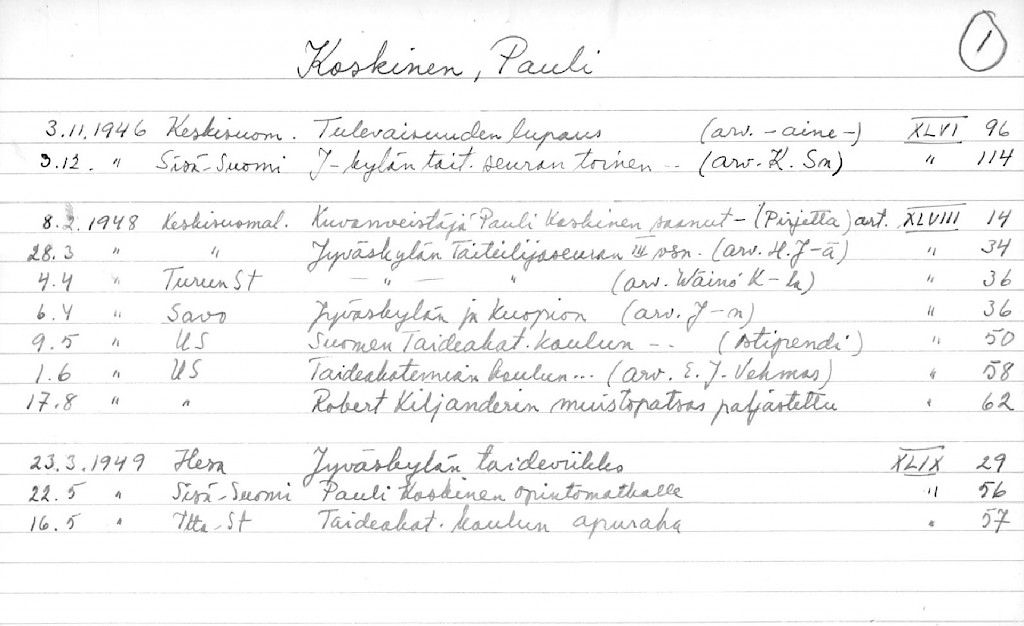 1
Koskinen, Pauli
3.11.1946 Keskisuom. Tulevaisuuden lupaus (arv. -aine-) XLVI 96
3.12. " Sisä-Suomi J-kylän tait. seuran toinen -- (arv. K. Sn) " 114
8.2.1948 Keskisuomal. Kuvanveistäjä Pauli Koskinen saanut - (Pirjetta) art. XLVIII 14
28.3 " " Jyväskylän Taiteilijaseuran III vsn. (arv. H. J-ä) " 34
4.4 " Turun St - " - " (arv. Wäinö K-la) " 36
6.4 " Savo Jyväskylän ja Kuopion (arv. J-n) " 36
9.5 " US Suomen Taideakat. koulun -- (stipendi) " 50
1.6 " US Taideakatemian koulun... (arv. E. J. Vehmas) " 58
17.8 " " Robert Kiljanderin muistopatsas paljastettu " 62
23.3.1949 Hesa Jyväskylän taideviikko XLIX 29
22.5 " Sisä-Suomi Pauli Koskinen opintomatkalle " 56
16.5 " Itta-St Taideakat. koulun apuraha " 57